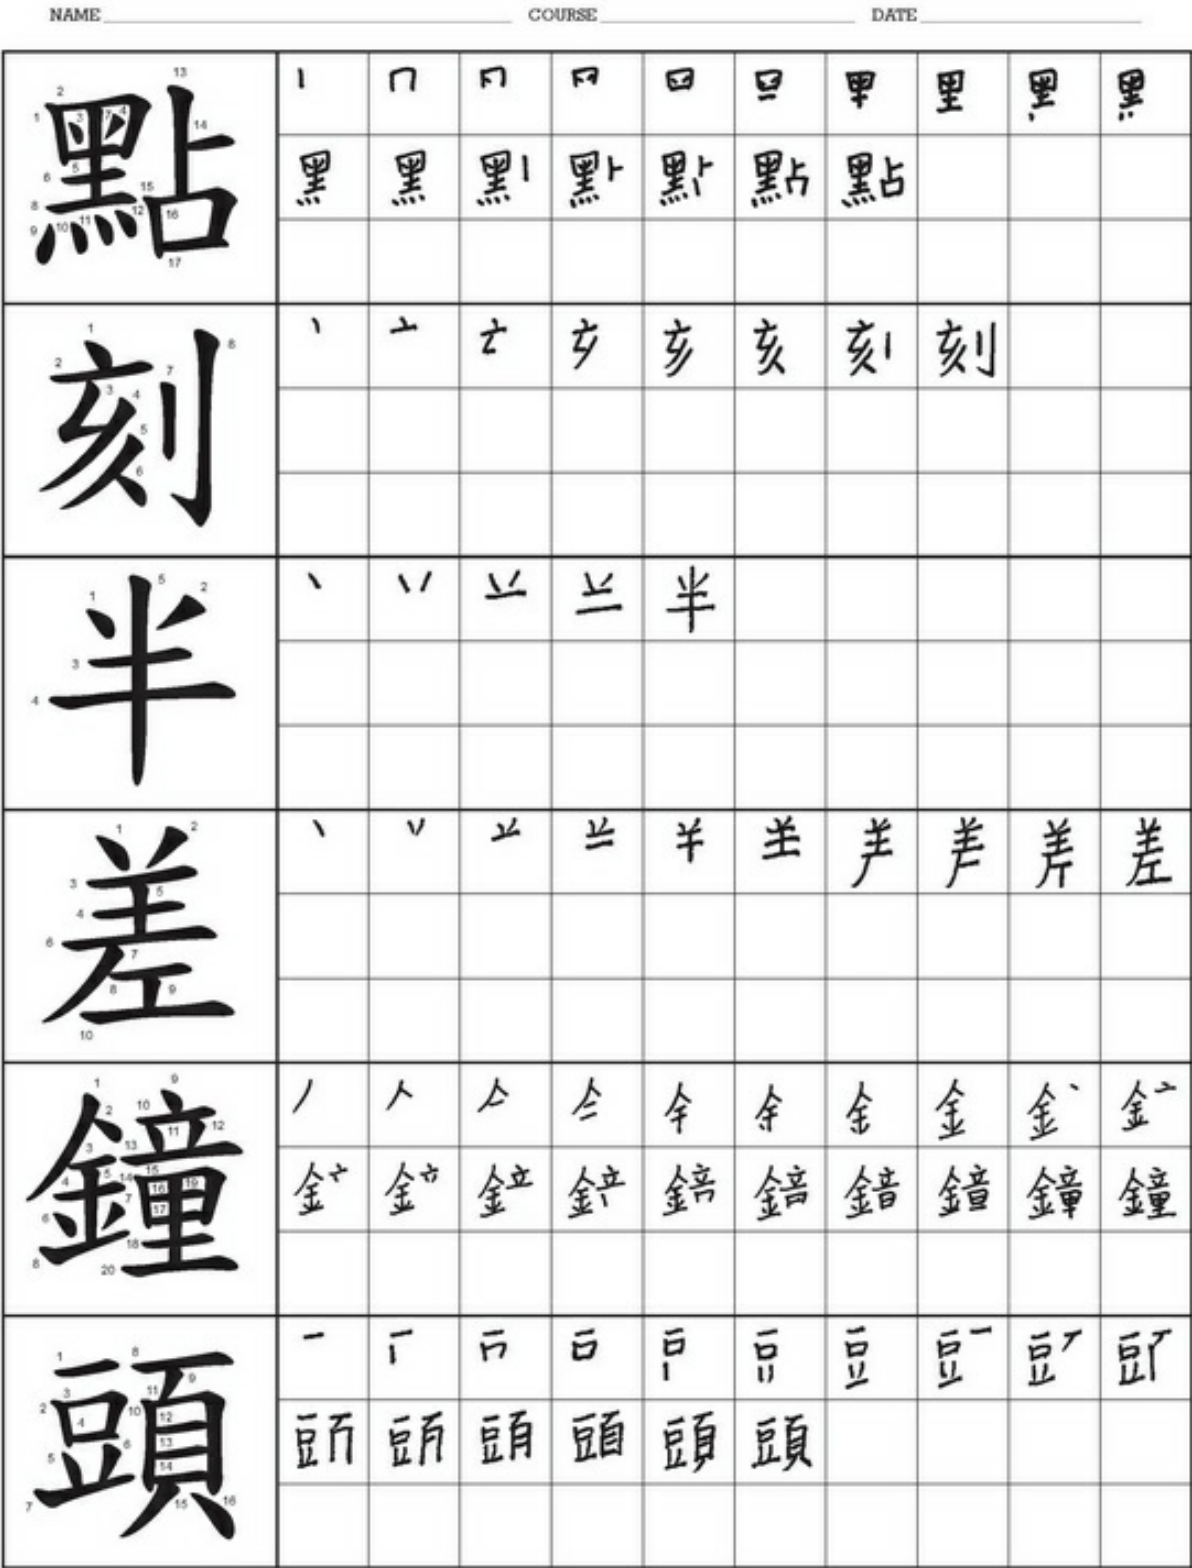 NAME COURSE DATE
點
點
刻
刻
半
半
差
差
鐘
鐘
頭
頭